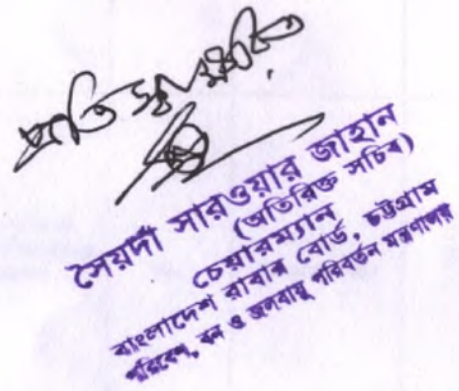 প্রতি স্বাক্ষরিত
সৈয়দা সারওয়ার জাহান
(অতিরিক্ত সচিব)
চেয়ারম্যান
বাংলাদেশ রাবার বোর্ড, চট্টগ্রাম
পরিবেশ, বন ও জলবায়ু পরিবর্তন মন্ত্রণালয়